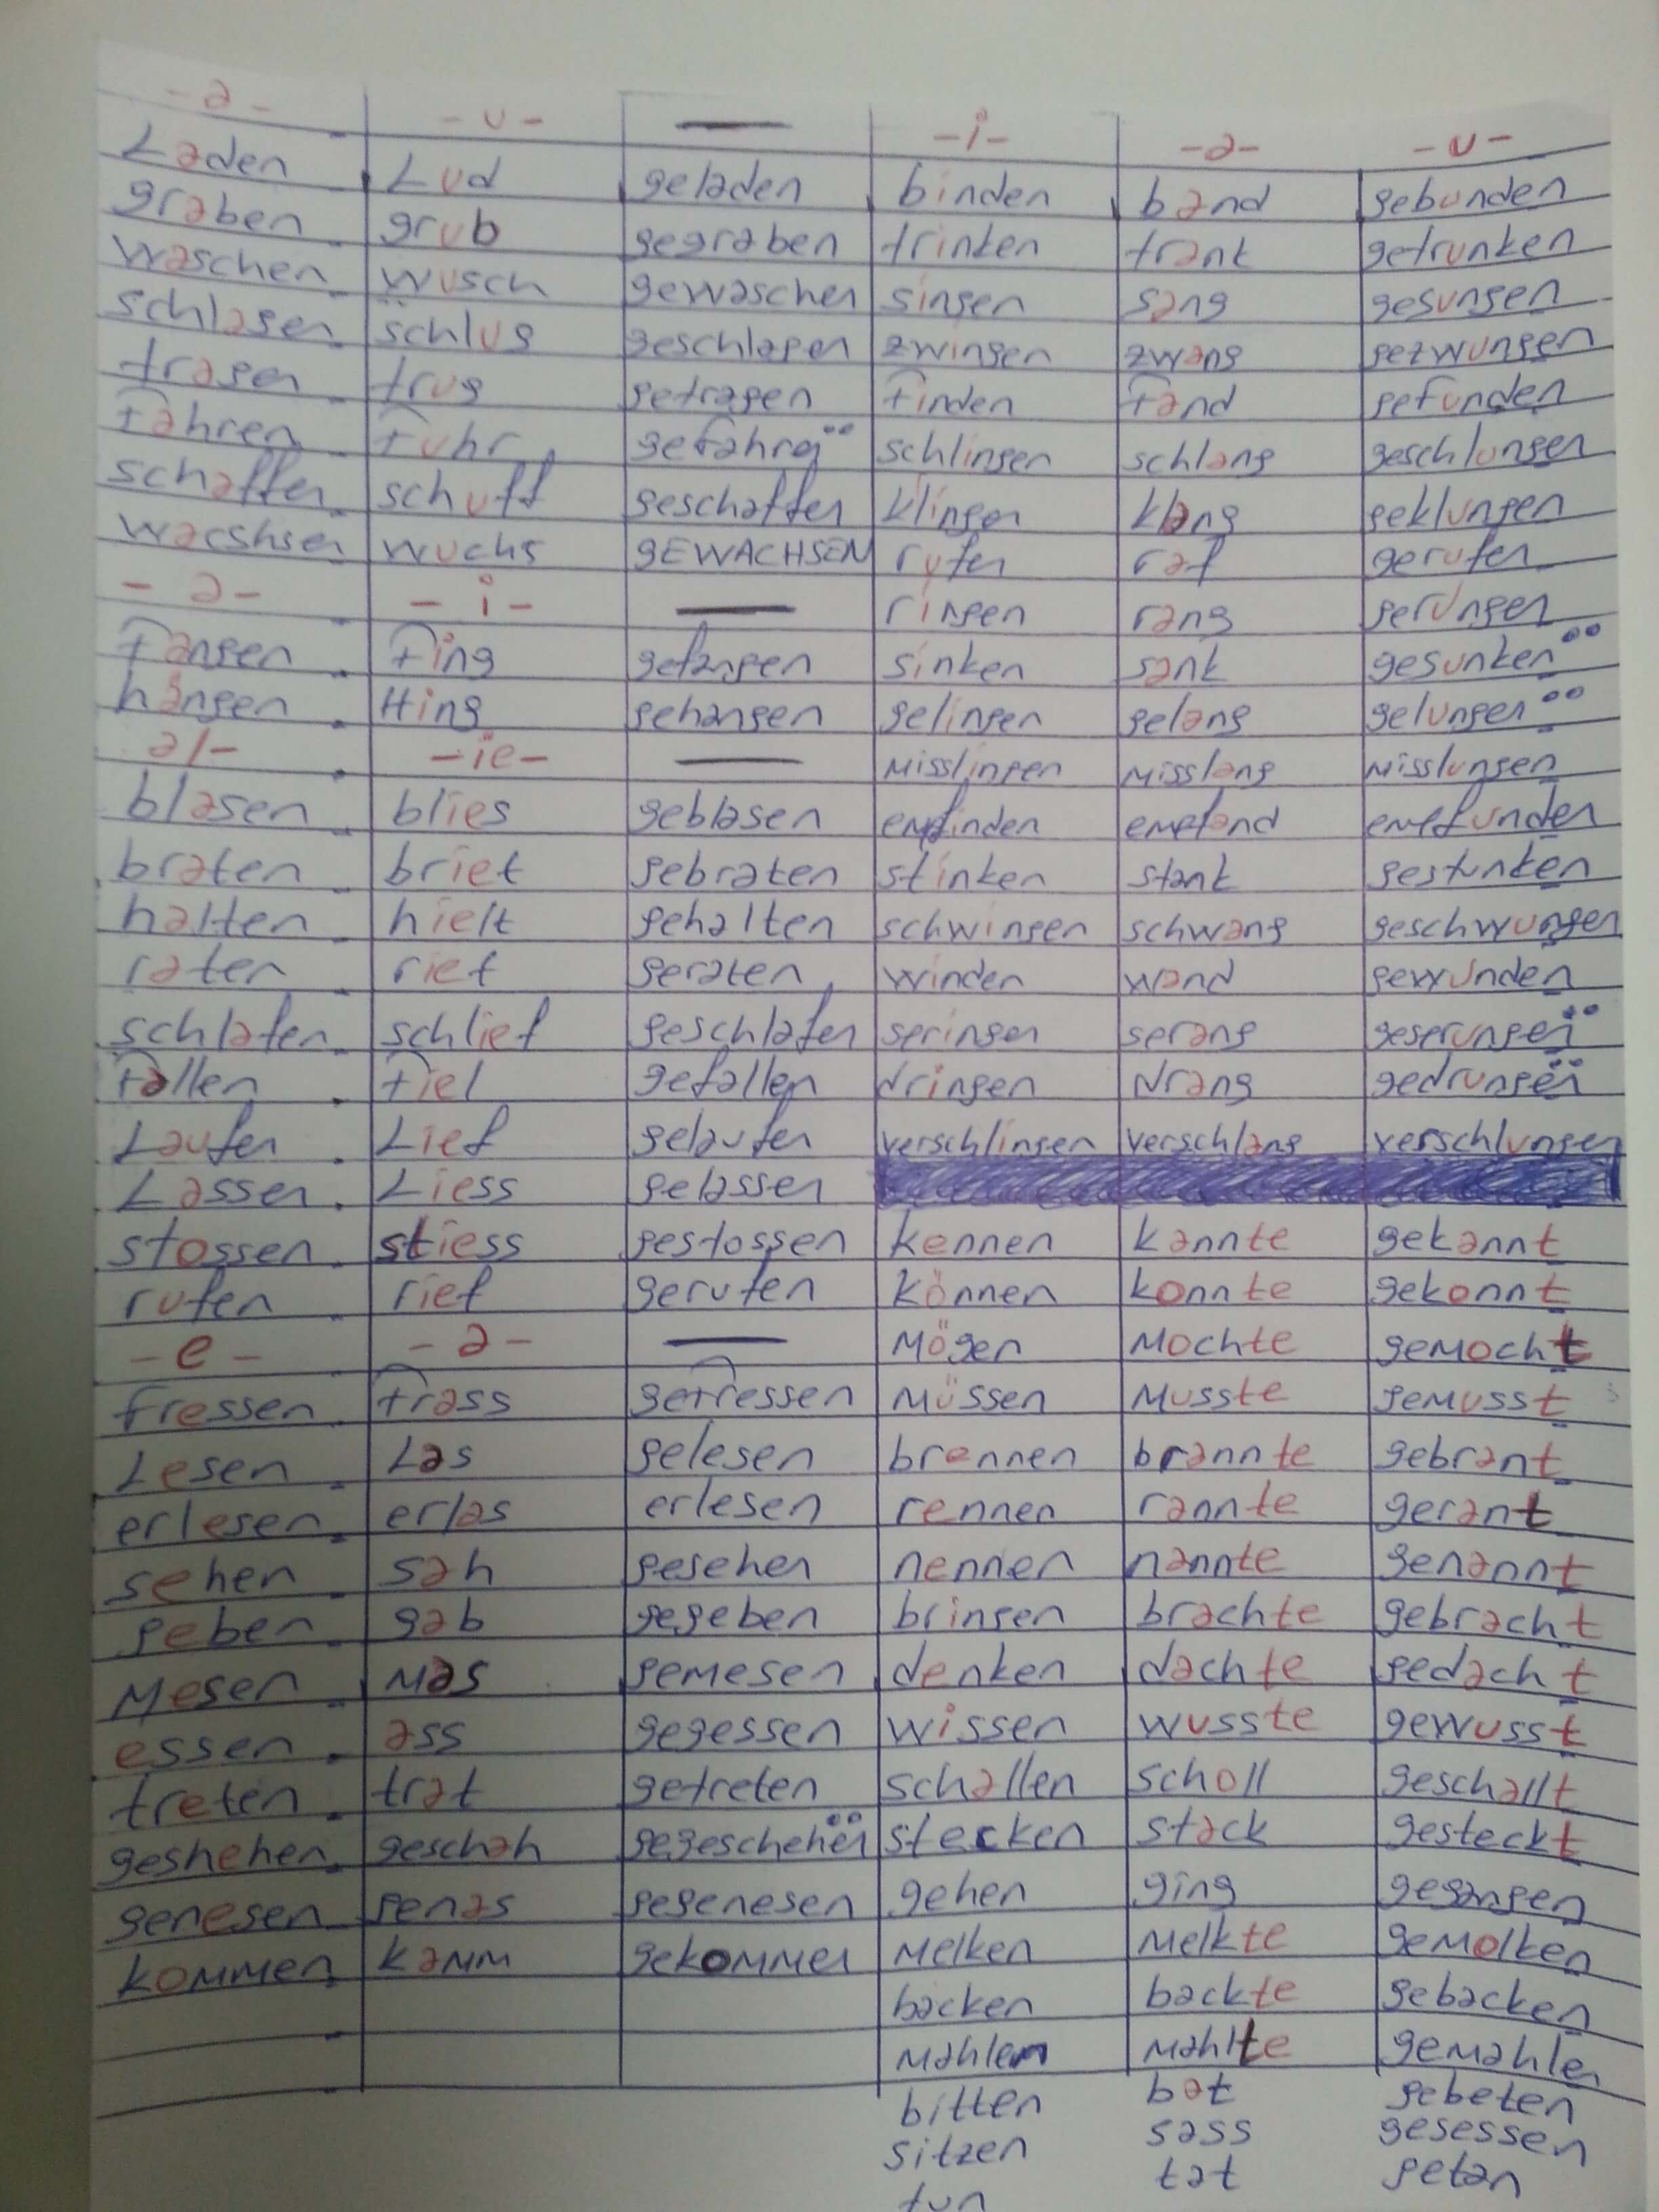 -a- -u- — -i- -a- -u-
Laden Lud geladen binden band gebunden
graben grub gegraben trinken trank getrunken
waschen wusch gewaschen singen sang gesungen
schlagen schlug geschlagen zwingen zwang gezwungen
tragen trug getragen finden fand gefunden
fahren fuhr gefahren schlingen schlang geschlungen
schaffen schuff geschaffen klingen klang geklungen
wacshsen wuchs gEWACHSEN rufen raf gerufen
-a- -i- — ringen rang gerungen
fangen fing gefangen sinken sank gesunken
hängen Hing gehangen gelingen gelang gelungen
a/- -ie- — Misslingen Misslang Misslungen
blasen blies geblasen empfinden empfand empfunden
braten briet gebraten stinken stank gestunken
halten hielt gehalten schwingen schwang geschwungen
raten riet geraten winden wand gewunden
schlafen schlief geschlafen springen sprang gesprungen
fallen fiel gefallen dringen drang gedrungen
Laufen Lief gelaufen verschlingen verschlang verschlungen
Lassen Liess gelassen
stossen stiess gestossen kennen kannte gekannt
rufen rief gerufen können konnte gekonnt
-e- -a- — Mögen Mochte geMocht
fressen frass gefressen Müssen Musste geMusst
Lesen Las gelesen brennen brannte gebrant
erlesen erlas erlesen rennen rannte gerant
sehen sah gesehen nennen nannte genannt
geben gab gegeben bringen brachte gebracht
Mesen Mas geMesen denken dachte gedacht
essen ass gegessen wissen wusste gewusst
treten trat getreten schallen scholl geschallt
geshehen geschah gegeschehen stecken stack gesteckt
genesen genas gegenesen gehen ging gegangen
koMMen kaMM gekoMMen Melken Melkte geMolken
backen backte gebacken
Mahlen Mahlte geMahlen
bitten bat gebeten
sitzen sass gesessen
tun tat getan